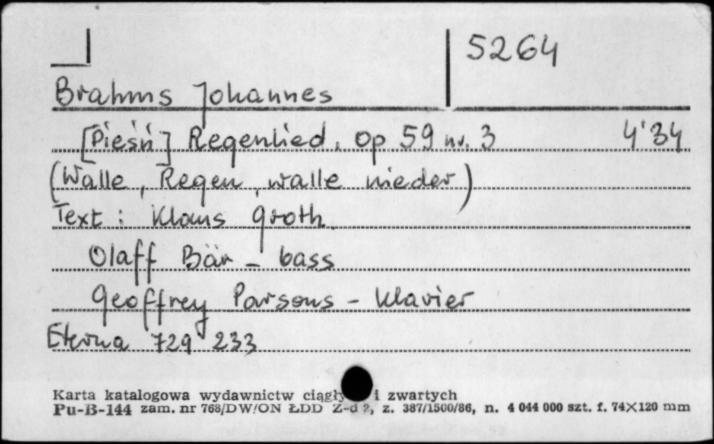 5264
Brahms Johannes
[Pieśń] Regenlied, op 59 nr. 3 4'34
(Walle, Regen, walle nieder)
Text: Klaus Groth
Olaff Bär - bass
Geoffrey Parsons - Klavier
Eterna 729 233
Karta katalogowa wydawnictw i zwartych
Pu-B-144 zam. nr 768/DW/ON ŁDD z. 387/1500/86, n. 4 044 000 szt. f. 74×120 mm